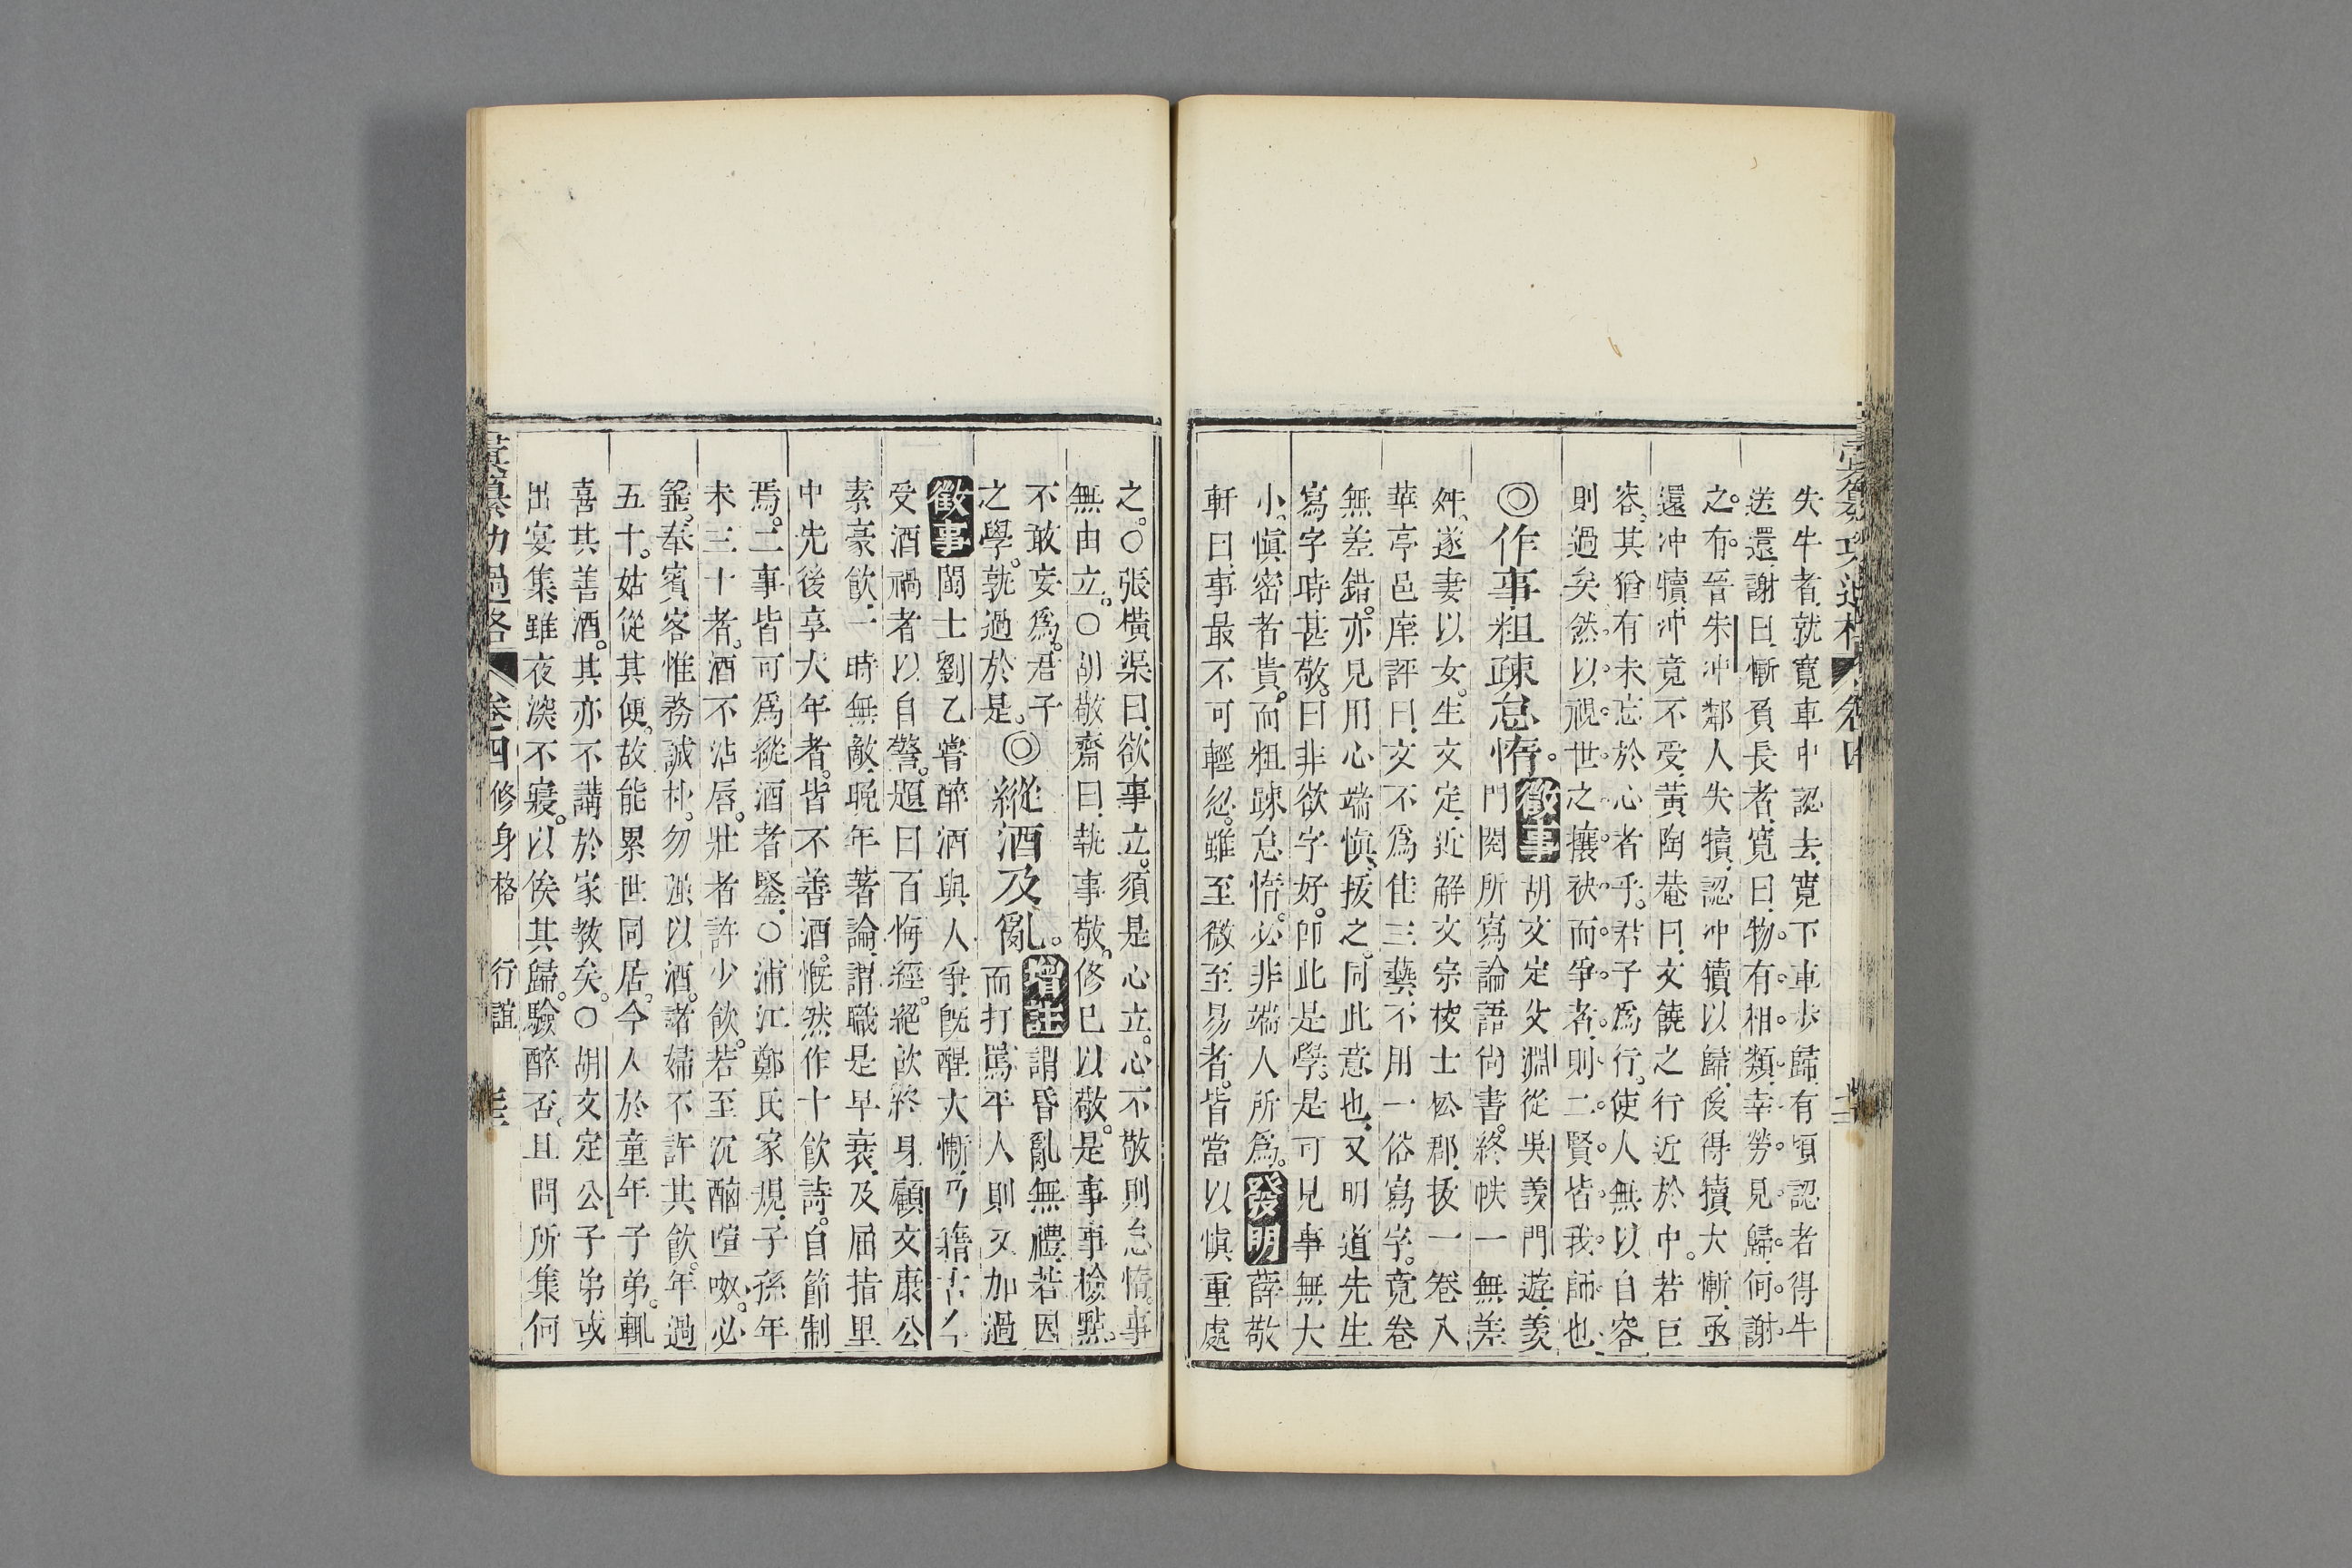 失牛者就寬車中認去寬下車步歸有頃認者得牛
送還謝曰慚負長者寬曰物有相類幸勞見歸何謝
之有晉朱冲鄰人失犢認冲犢以歸後得犢大慚亟
還冲犢冲竟不受黃陶菴曰文饒之行近於中若巨
容其猶有未忘於心者乎君子為行使人無以自容
則過矣然以視世之攘袂而爭者則二賢皆我師也
◎作事粗疎怠惰。徵事胡文定父淵從吳羨門遊羨
門閱所寫論語尚書終帙一無差
舛遂妻以女生文定近解文宗校士松郡拔一卷入
華亭邑庠評曰文不為佳三藝不用一俗寫字竟卷
無差錯亦見用心端愼拔之同此意也又明道先生
寫字時甚敬曰非欲字好卽此是學是可見事無大
小愼密者貴而粗踈怠惰必非端人所為發明薛敬
軒曰事最不可輕忽雖至微至易者皆當以愼重處
之○張橫渠曰欲事立須是心立心不敬則怠惰事
無由立○胡敬齋曰執事敬修已以敬是事事檢點
不敢妄爲君子
之學孰過於是◎縱酒及亂。增註謂昏亂無禮若因
而打罵平人則又加過
徵事閩士劉乙嘗醉酒與人爭旣醒大慚乃籍古今
受酒禍者以自警題曰百悔經絕飮終身顧文康公
素豪飮一時無敵晚年著論謂職是早衰及屈指里
中先後享大年者皆不善酒慨然作十飮詩自節制
焉二事皆可爲縱酒者鑒○浦江鄭氏家規子孫年
未三十者酒不沾唇壯者許少飮若至沉酗喧呶必
箠奉賓客惟務誠朴勿强以酒諸婦不許其飮年過
五十姑從其便故能累世同居今人於童年子弟輒
喜其善酒其亦不講於家教矣○胡文定公子弟或
出宴集雖夜深不寢以俟其歸驗醉否且問所集何
彙纂功過格 卷四 修身格 行誼